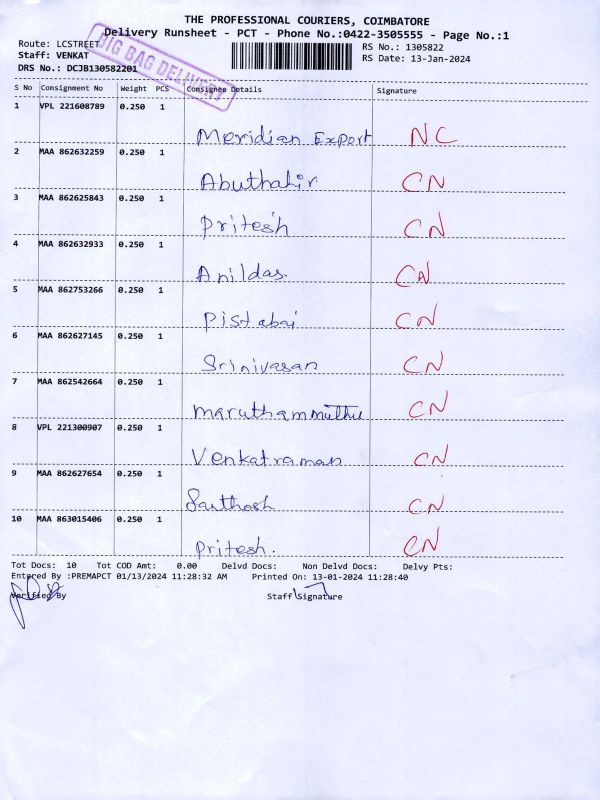 THE PROFESSIONAL COURIERS, COIMBATORE
Delivery Runsheet - PCT - Phone No.:0422-3505555 - Page No.:1
Route: LCSTREET
RS No.: 1305822
Staff: VENKAT
RS Date: 13-Jan-2024
DRS No.: DCJB130582201
BIG BAG DELIVERY
S No Consignment No Weight PCS Consignee Details Signature
1 VPL 221608789 0.250 1
Meridian Export NC
2 MAA 862632259 0.250 1
Abuthahir CN
3 MAA 862625843 0.250 1
Pritesh CN
4 MAA 862632933 0.250 1
Anildas CN
5 MAA 862753266 0.250 1
Pistabai CN
6 MAA 862627145 0.250 1
Srinivasan CN
7 MAA 862542664 0.250 1
maruthammuthu CN
8 VPL 221300907 0.250 1
Venkatraman CN
9 MAA 862627654 0.250 1
Santhosh CN
10 MAA 863015406 0.250 1
Pritesh. CN
Tot Docs: 10 Tot COD Amt: 0.00 Delvd Docs: Non Delvd Docs: Delvy Pts:
Entered By :PREMAPCT 01/13/2024 11:28:32 AM Printed On: 13-01-2024 11:28:40
Verified By Staff Signature